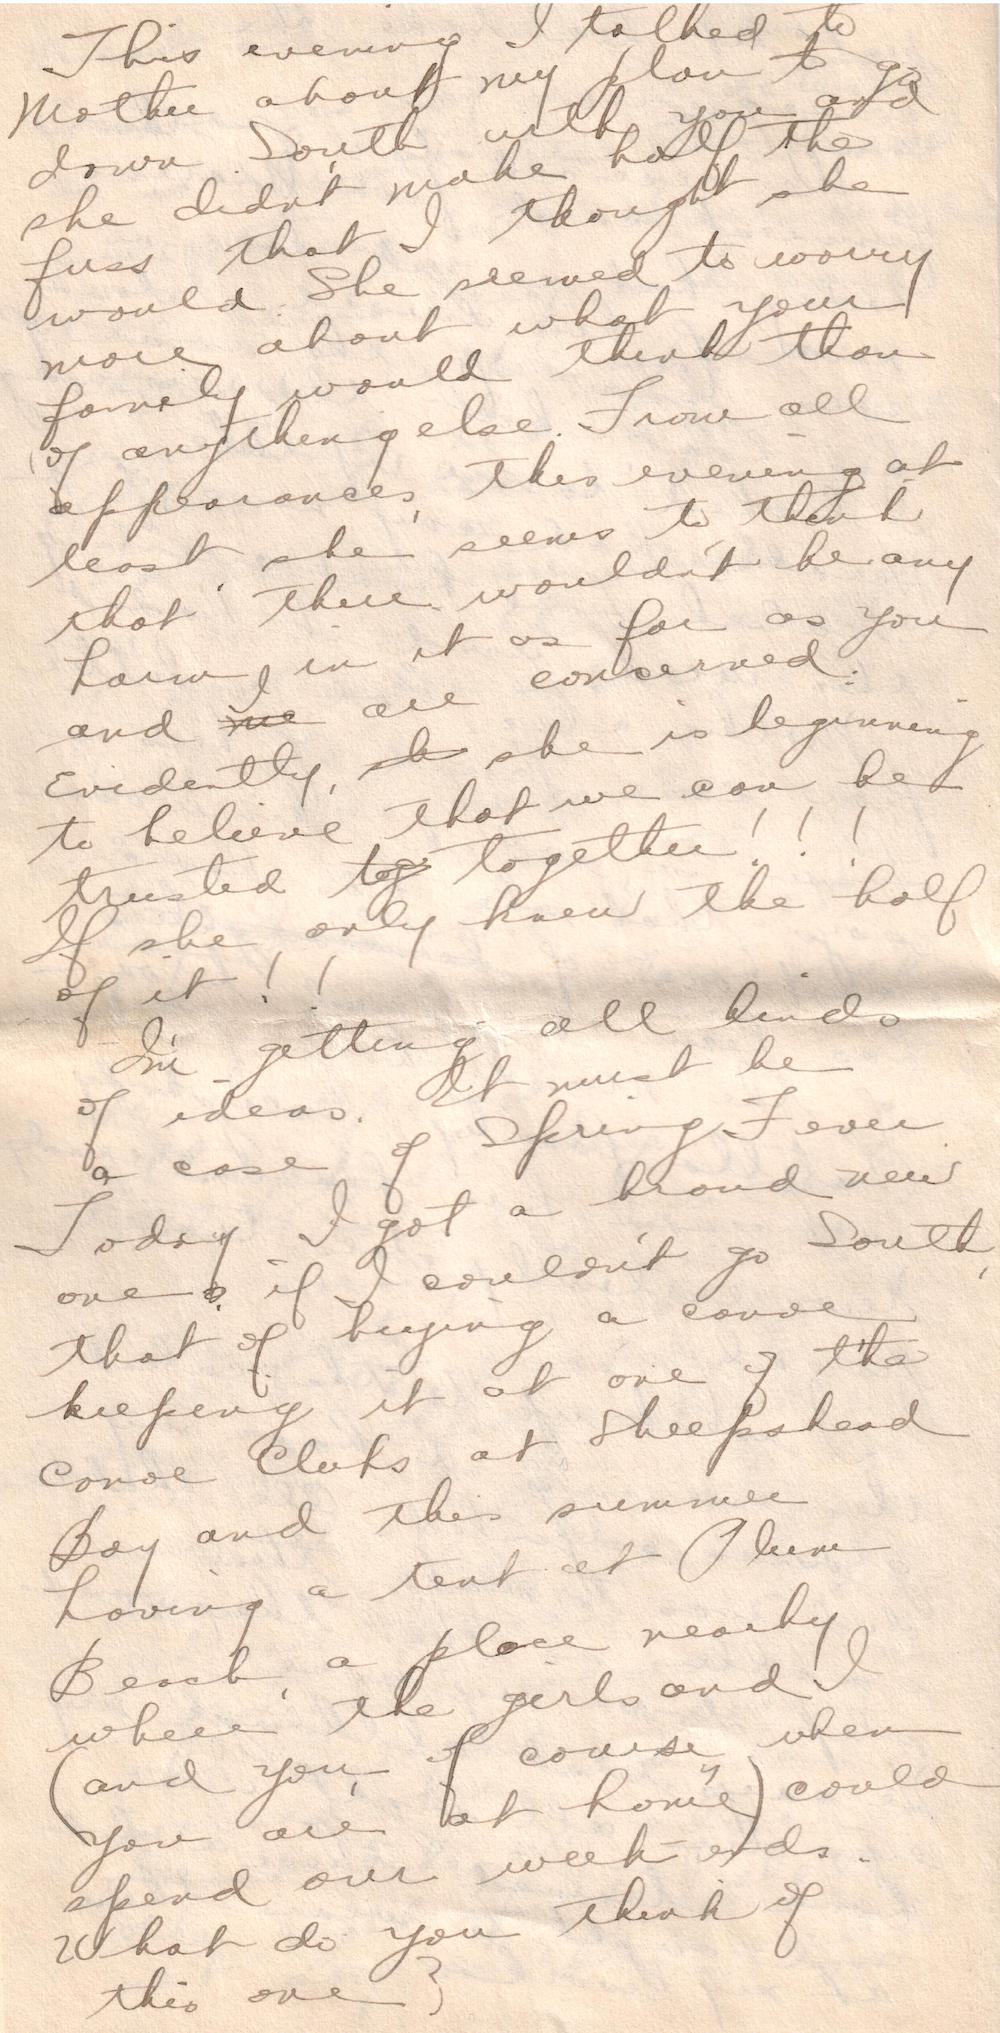 This evening I talked to
Mother about my plan to go
down South with you and
she didn't make half the
fuss that I thought she
would. She seemed to worry
more about what your
family would think than
of anything else. From all
appearances, this evening at
least, she seems to think
that there wouldn't be any
harm in it as far as you
and me I are concerned.
Evidently, sh she is beginning
to believe that we can be
trusted tog together!!!
If she only knew the half
of it!!
I'm getting all kinds
of ideas. It must be
a case of Spring Fever
Today I got a brand new
one, if I couldn't go South,
that of buying a canoe
keeping it at one of the
Canoe Clubs at Sheepshead
Bay and this summer
having a tent at Plum
Beach, a place nearby
where the girls and I
(and you, of course, when
you are "at home") could
spend our week-ends.
What do you think of
this one?